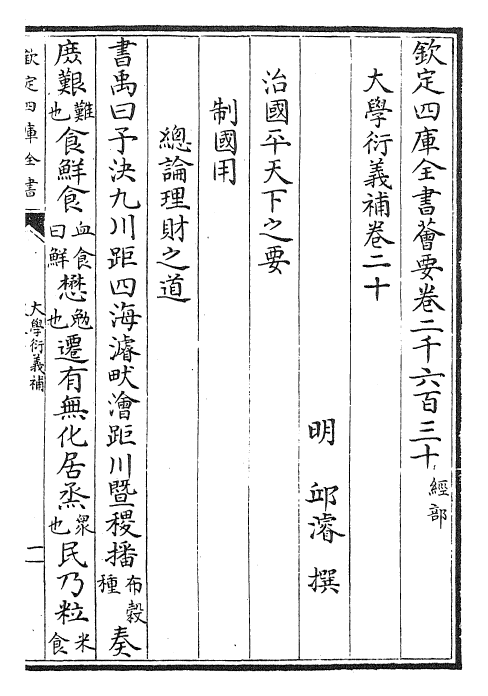 欽定四庫全書薈要卷二千六百三十 經部
大學衍義補卷二十
明 邱濬 撰
治國平天下之要
制國用
總論理財之道
書禹曰予決九川距四海濬畎澮距川暨稷播布穀種奏
庶艱難也食鮮食血食曰鮮懋勉也遷有無化居烝衆也民乃粒米食
欽定四庫全書
大學衍義補
一